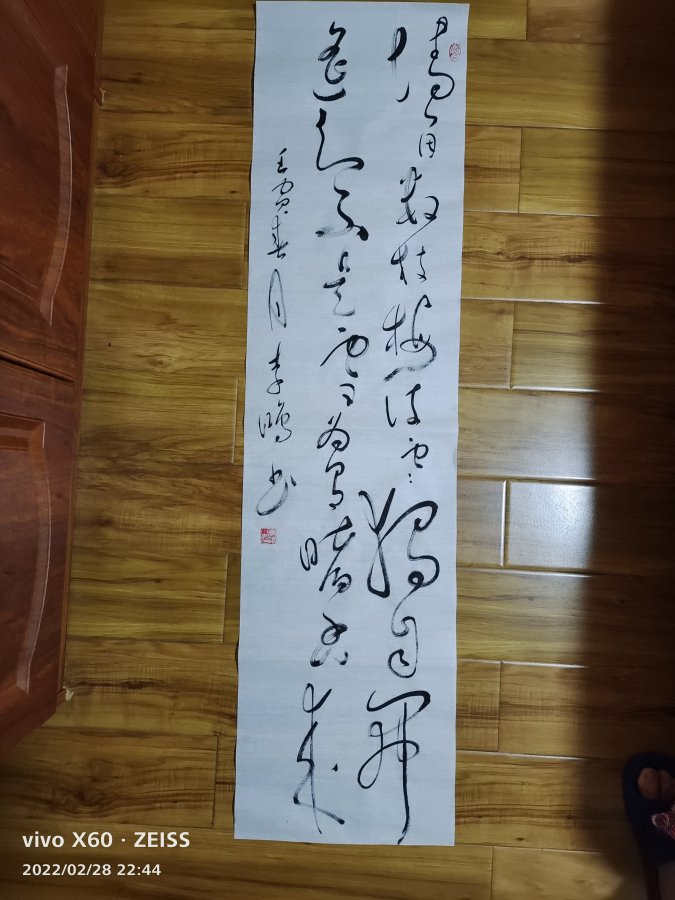 牆角數枝梅凌寒獨自開
遙知不是雪為有暗香來
壬寅春月李書
vivo X60 · ZEISS
2022/02/28 22:44